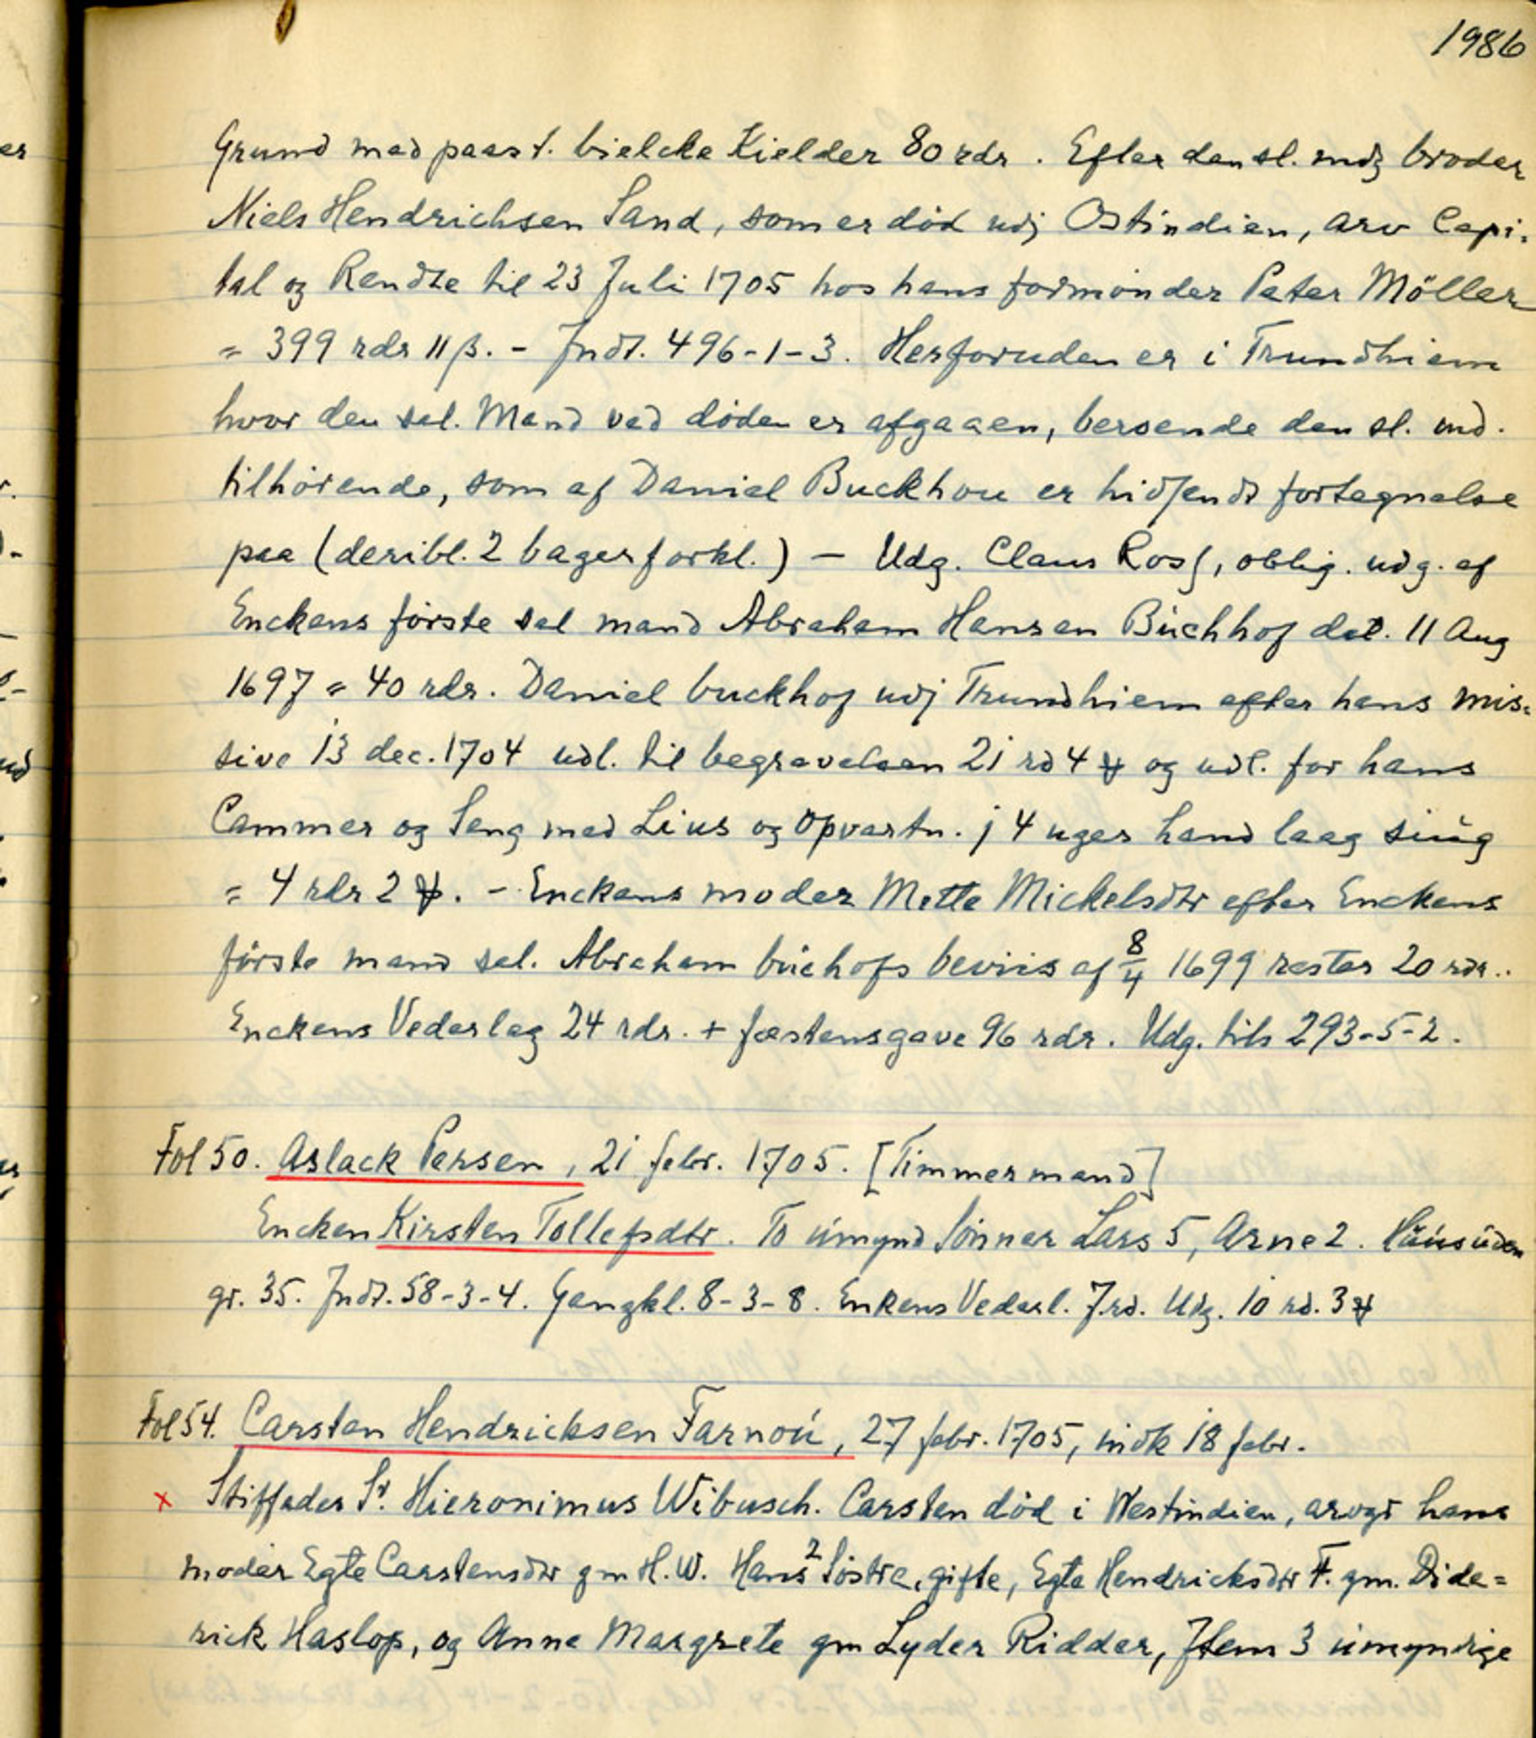 1986
Grund med paast. bielcke Kielder 80 rdr. Efter den sl. mdz broder
Niels Hendrichsen Sand, som er död udj Ostindien, arv Capi-
tal og Rendte til 23 Juli 1705 hos hans formönder Peter Möller
= 399 rdr 11 β. - Jndt. 496-1-3. Herforuden er i Trundhiem
hvor den sal. Mand ved döden er afgaaen, beroende den sl. md.
tilhörende, som af Daniel Buckhou er hidsendt fortegnelse
paa (deribl. 2 bagerforkl.) — Udg. Claus Ross, oblig. udg. af
Enckens förste sal mand Abraham Hansen Büchhof dat. 11 Aug
1697 = 40 rdr. Daniel buckhof udj Trundhiem efter hans mis-
sive 13 dec. 1704 udl. til begravelsen 21 rd 4 ꝟ og udl. for hans
Cammer og Seng med Lius og opvartn. j 4 uger hand laag siug
= 4 rdr 2 ꝟ. - Enckens moder Mette Mickelsdtr efter Enckens
förste mand sal. Abraham büchofs beviis af 8/4 1699 rester 20 rdr..
Enckens Vederlag 24 rdr. + fæstensgave 96 rdr. Udg. tils 293-5-2.
Fol 50. Aslack Persen, 21 febr. 1705. [Timmermand]
Encken Kirsten Tollefsdtr. To ümynd Sönner Lars 5, Arne 2. Hüüs üden
gr. 35. Jndt. 58-3-4. Gangkl. 8-3-8. Enkens Vederl. 7 rd. Udg. 10 rd. 3 ꝟ
Fol 54. Carsten Hendricksen Farnoü, 27 febr. 1705, indk 18 febr.
x Stiffader Sr. Hieronimus Wibusch. Carsten död i Westindien, arvgr hans
moder Egte Carstensdtr gm H.W. Hans 2 Söstre, gifte, Egte Hendricksdtr F. gm. Dide=
rick Haslop, og Anne Margrete gm Lyder Ridder, Jtem 3 ümyndige